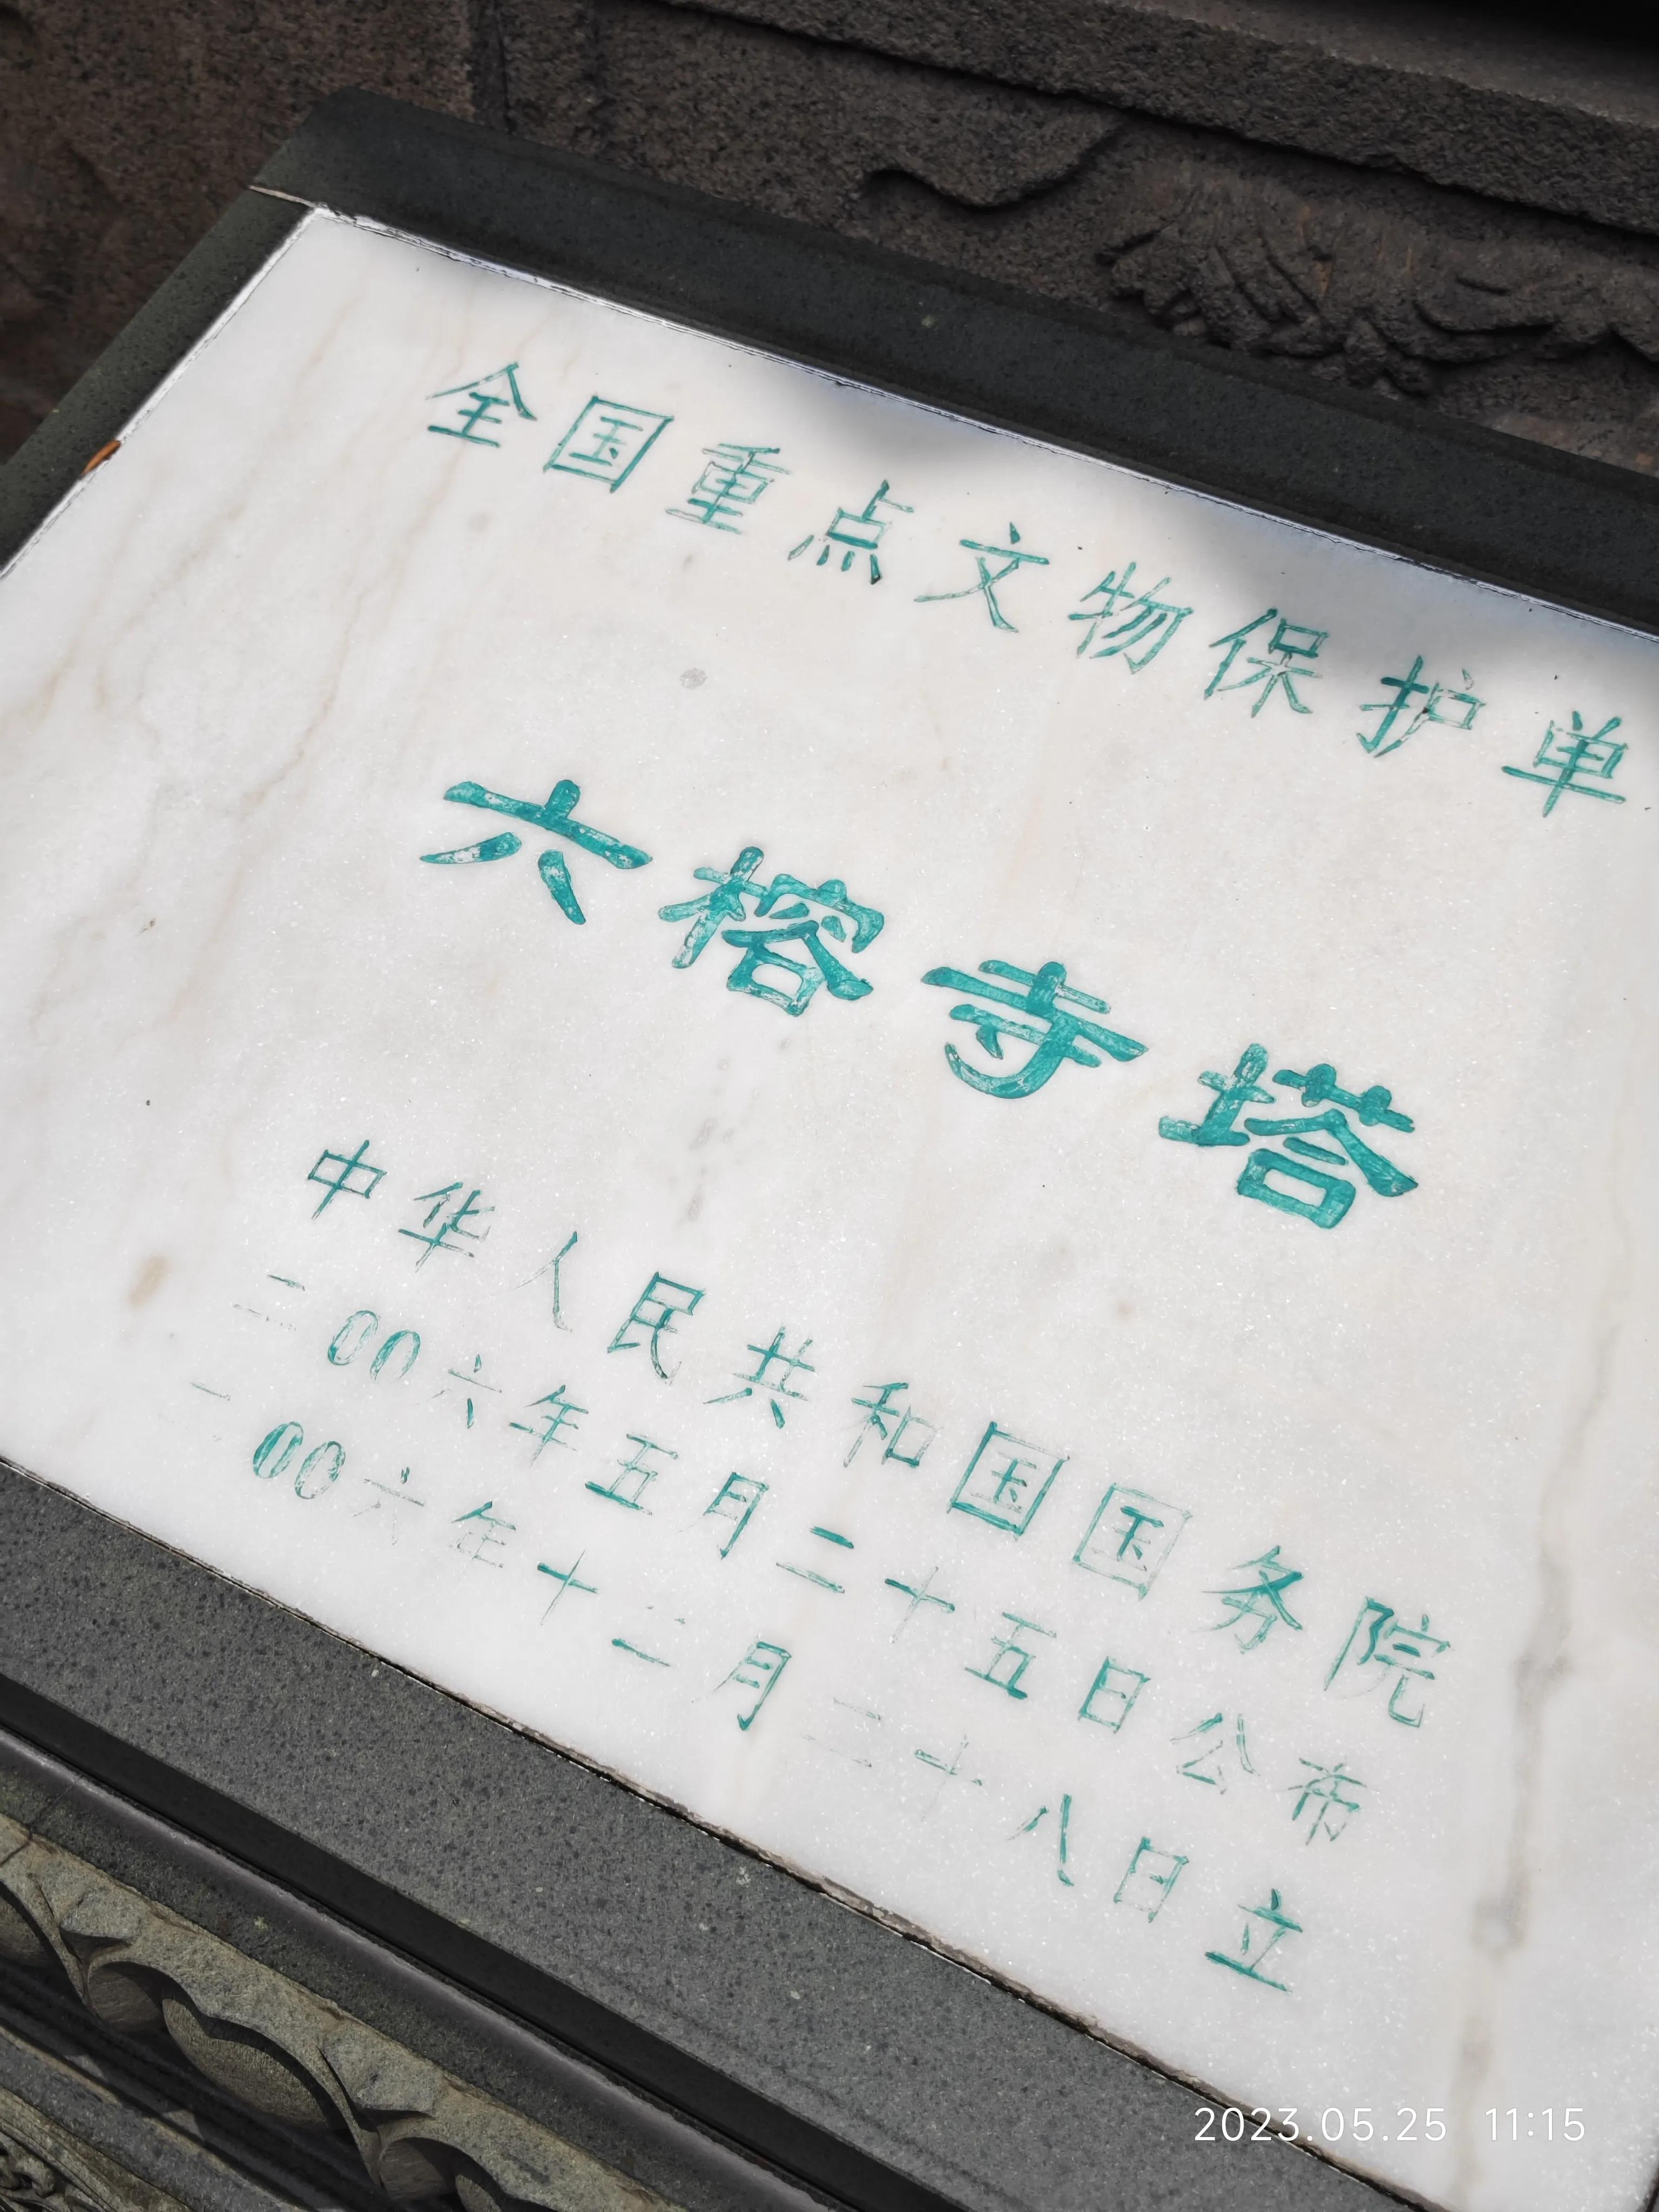 全国重点文物保护单
六榕寺塔
中华人民共和国国务院
二00六年五月二十五日公布
二00六年十二月二十八日立
2023.05.25 11:15